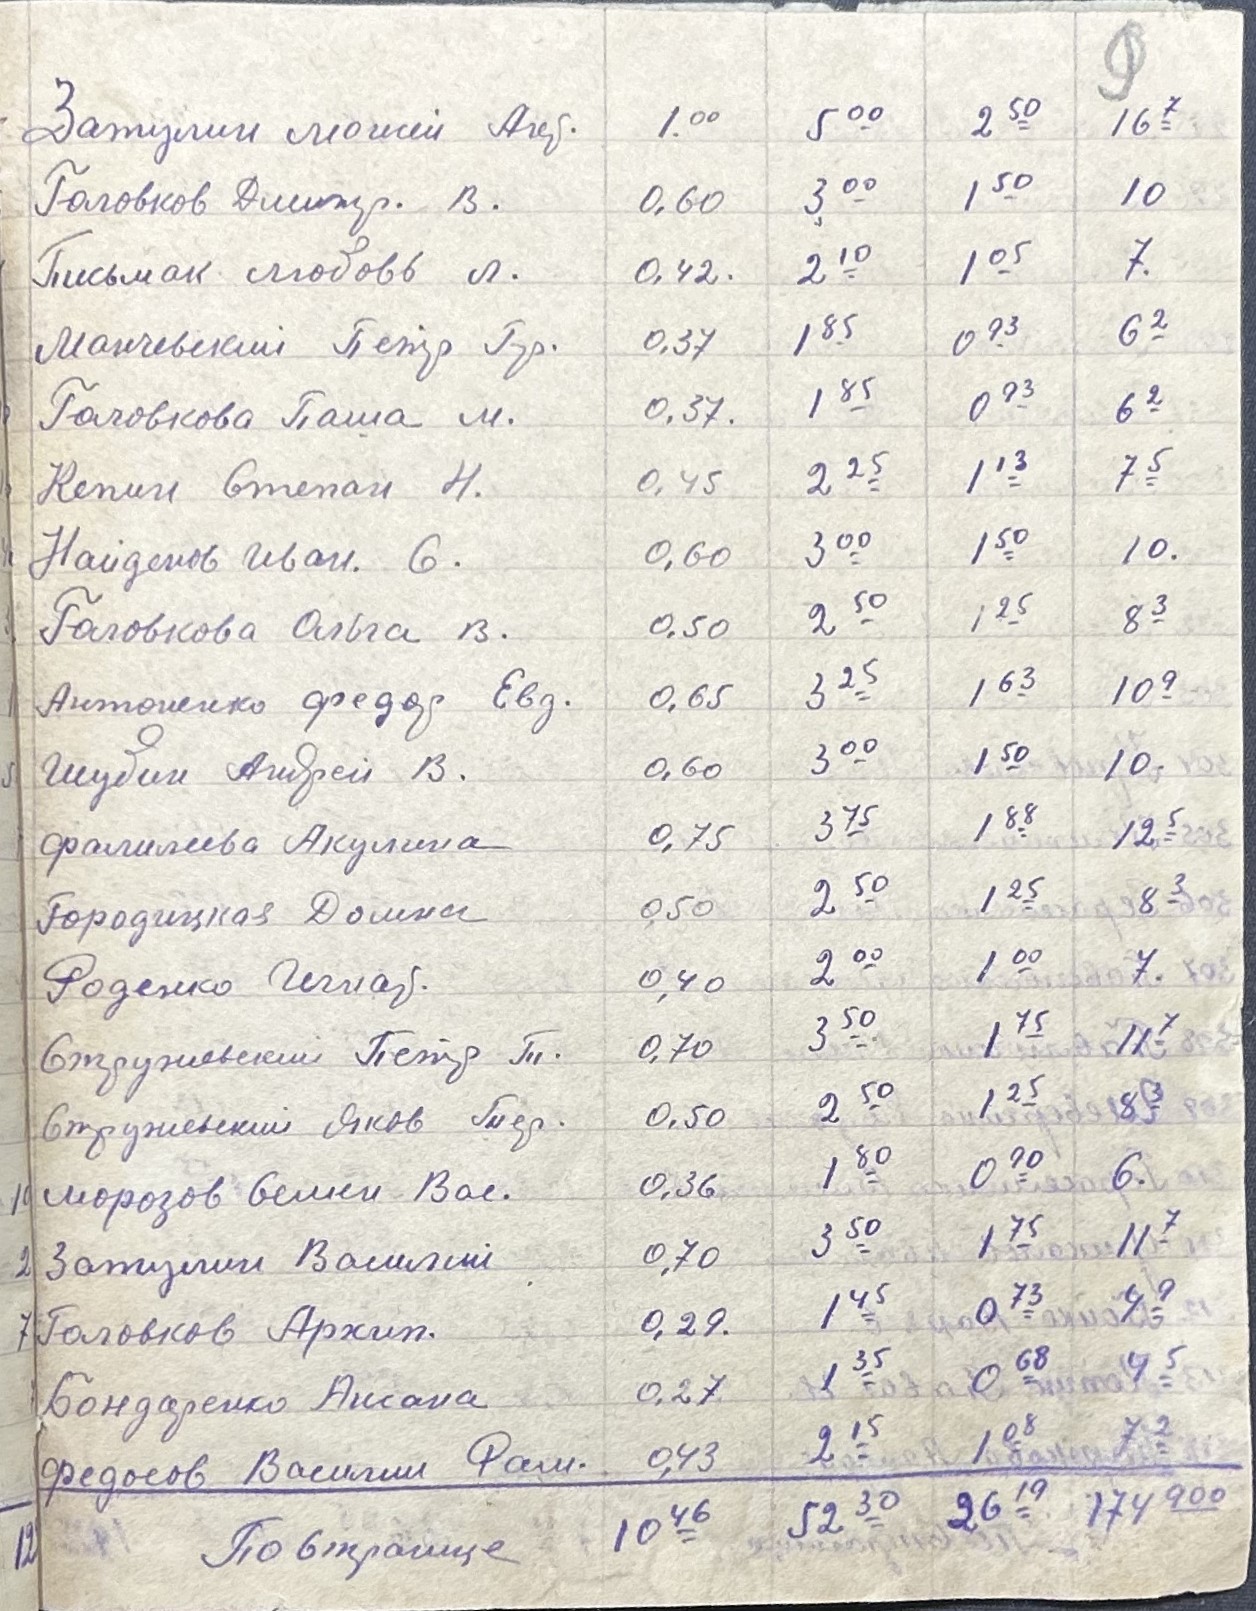 9
Затулин Мокей Анд. 1.00 5 00 2 50 16 7
Головков Дмитр. В. 0,60 3 00 1 50 10
Письмак Любовь Л. 0,42. 2 10 1 05 7.
Манчевский Петр Гр. 0,37 1 85 0 93 6 2
Головкова Паша М. 0,37. 1 85 0 93 6 2
Кепин Степан Н. 0,45 2 25 1 13 7 5
Найденов Иван. С. 0,60 3 00 1 50 10.
Головкова Ольга В. 0,50 2 50 1 25 8 3
Антоненко Федор Евд. 0,65 3 25 1 63 10 9
Шубин Андрей В. 0,60 3 00 1 50 10.
Фалилеева Акулина 0,75 3 75 1 88 12 5
Городицкая Домна 0,50 2 50 1 25 8 3
Роденко Игнат. 0,40 2 00 1 00 7.
Стружевский Петр Т. 0,70 3 50 1 75 11 7
Стружевский Яков 0,50 2 50 1 25 8 3
10 Морозов Семен Вас. 0,36 1 80 0 90 6.
2 Затулин Василий 0,70 3 50 1 75 11 7
7 Головков Архип. 0,29. 1 45 0 73 4 9
Бондаренко Аксана 0,27 1 35 0 68 4 5
Федосов Василий 0,43 2 15 1 08 7 2
12 По странице 10 46 52 30 26 19 174 900